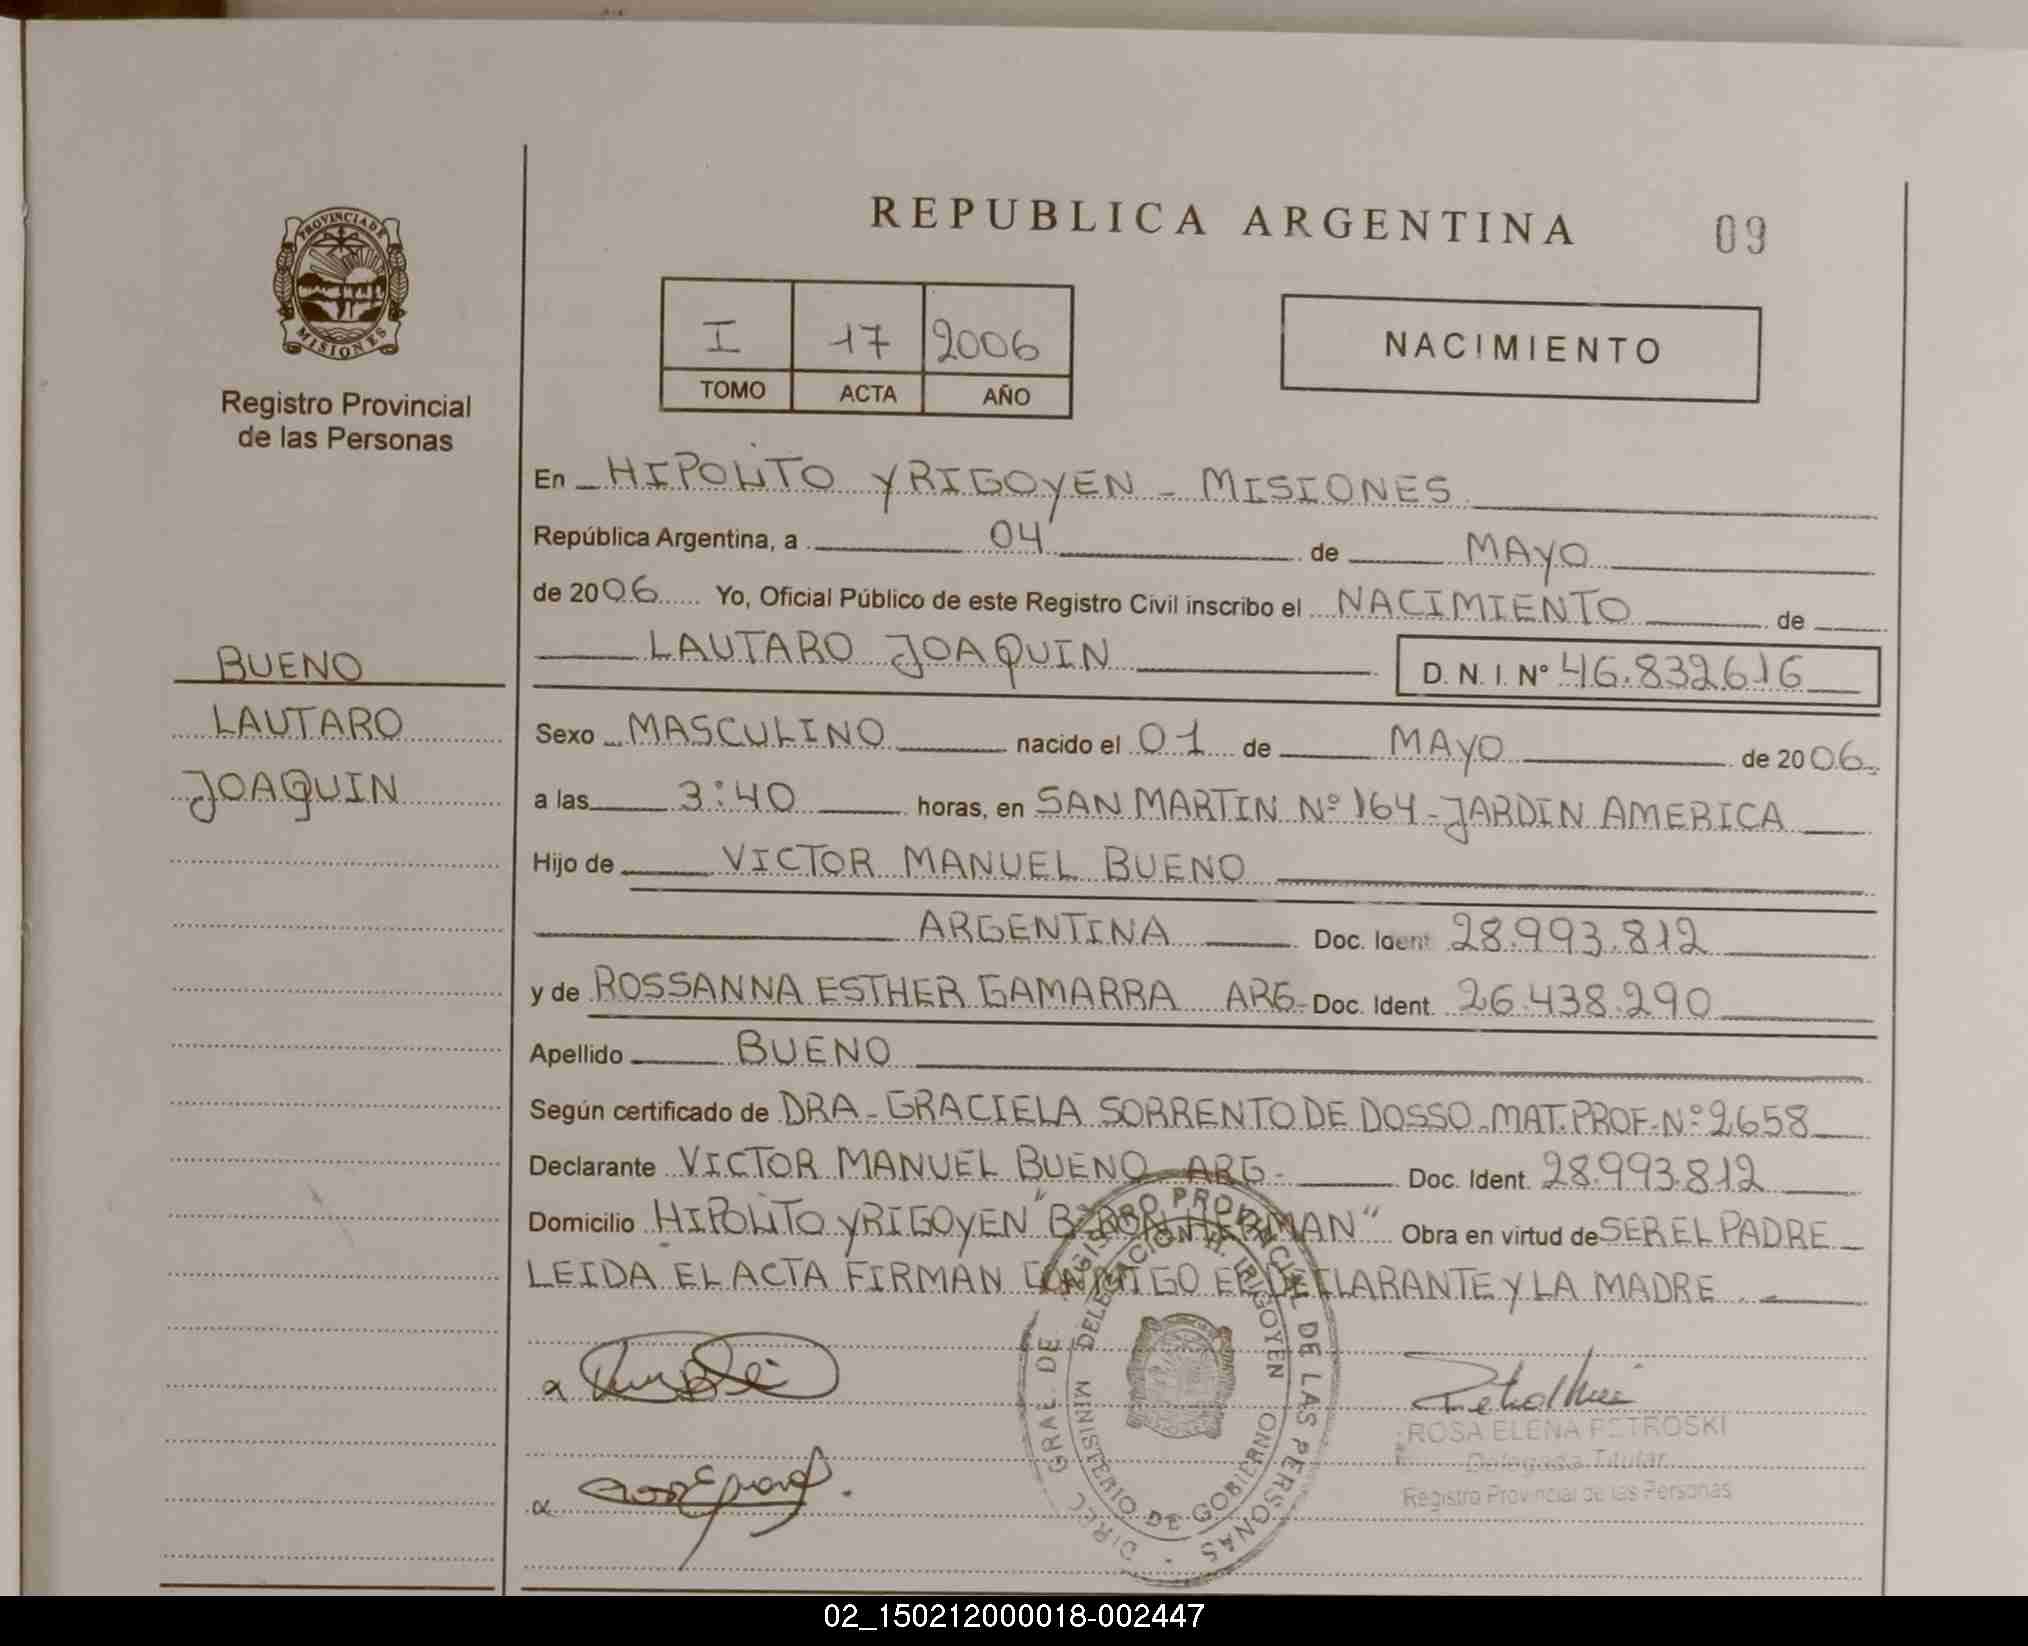 REPUBLICA ARGENTINA
09
PROVINCIA DE
MISIONES
Registro Provincial
de las Personas
I 17 2006
TOMO ACTA AÑO
NACIMIENTO
En HIPOLITO YRIGOYEN - MISIONES
República Argentina, a 04 de MAYO
de 2006 Yo, Oficial Público de este Registro Civil inscribo el NACIMIENTO de
LAUTARO JOAQUIN D. N. I. Nº 46.832616
BUENO
LAUTARO
JOAQUIN
Sexo MASCULINO nacido el 01 de MAYO de 2006
a las 3:40 horas, en SAN MARTIN Nº 164 - JARDIN AMERICA
Hijo de VICTOR MANUEL BUENO
ARGENTINA Doc. Ident. 28.993.812
y de ROSSANNA ESTHER GAMARRA ARG- Doc. Ident. 26.438.290
Apellido BUENO
Según certificado de DRA- GRACIELA SORRENTO DE DOSSO. MAT. PROF- Nº 2658
Declarante VICTOR MANUEL BUENO ARG- Doc. Ident. 28.993.812
Domicilio HIPOLITO YRIGOYEN "BARON HERMAN" Obra en virtud de SER EL PADRE
LEIDA EL ACTA FIRMAN CONMIGO EL DECLARANTE Y LA MADRE
DIREC. GRAL. DE REGISTRO PROVINCIAL DE LAS PERSONAS
DELEGACION H. IRIGOYEN
MINISTERIO DE GOBIERNO
ROSA ELENA PETROSKI
Delegada Titular
Registro Provincial de las Personas
02_150212000018-002447